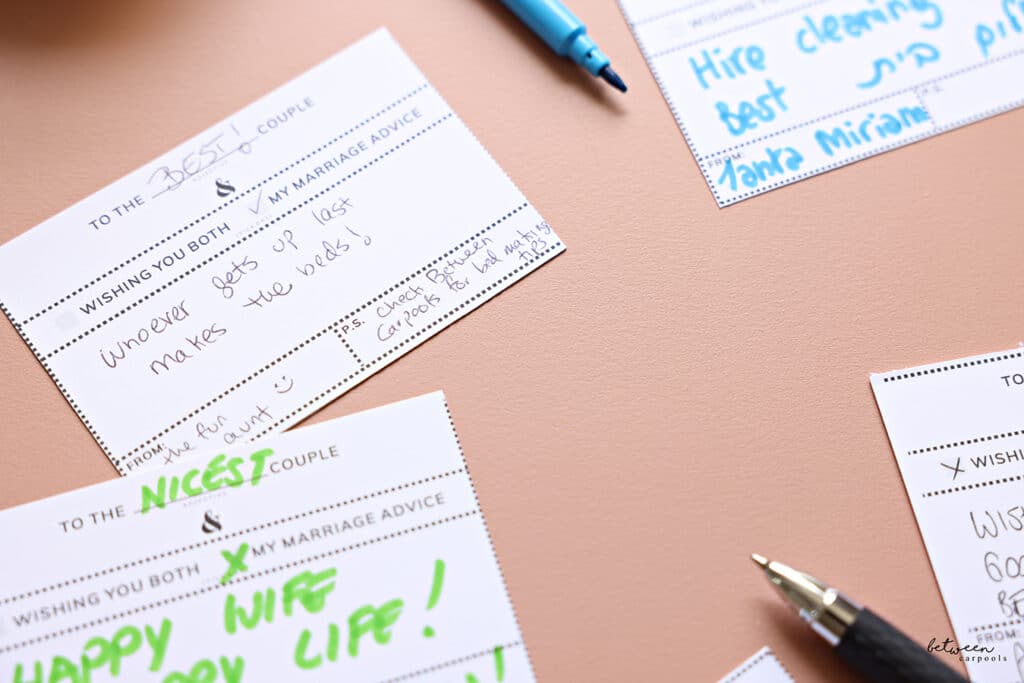 WISHING
Hire cleaning
Best לום בית
FROM:
Tanta Miriam
TO THE BEST! COUPLE
&
WISHING YOU BOTH ✓ MY MARRIAGE ADVICE
Whoever gets up last
makes the beds!
FROM:
the fun
aunt :)
P.S.
check Between
Carpools for bed making
tips
TO THE NICEST COUPLE
&
WISHING YOU BOTH X MY MARRIAGE ADVICE
HAPPY WIFE
LIFE!
TO
X WISHI
WIS
GOO
BE
FROM:
between
carpools